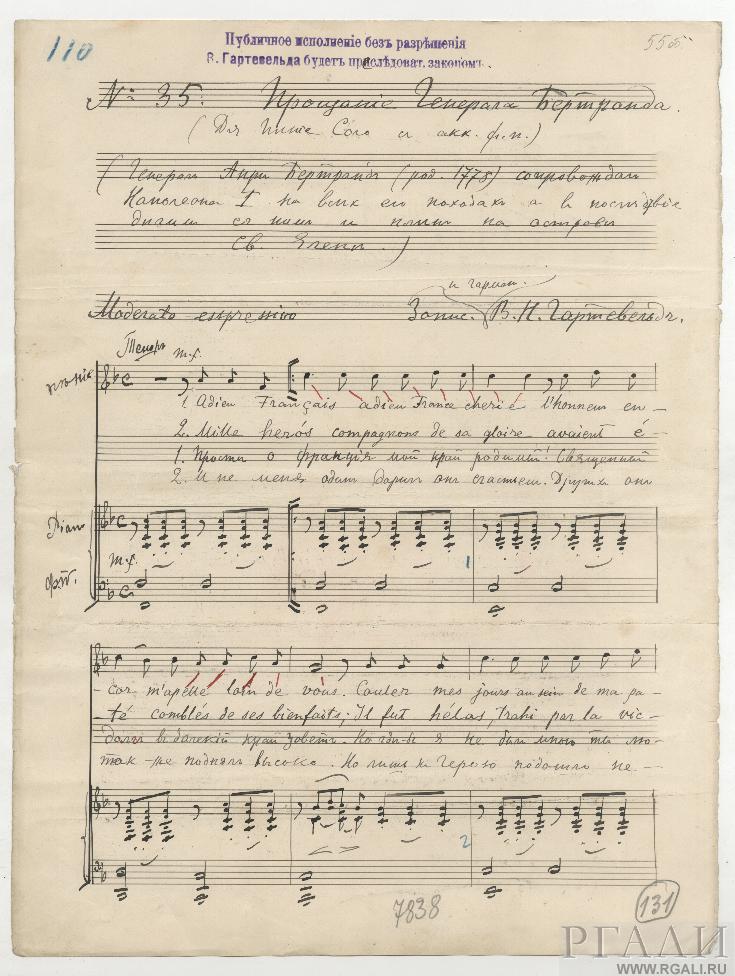 110
Публичное исполненіе безъ разрѣшенія
В. Гартевельда будетъ преслѣдоват. закономъ.
55 об.
№ 35. Прощаніе Генерала Бертранда.
(Для Соло с акк. ф.п.)
(Генерал Анри Бертранъ (род. 1778) сопровождал
Наполеона I на всѣх его походах а в послѣдствіе
с ним и на остров
Св. Елены.)
и гармон.
Moderato espressivo
Запис. В. Н. Гартевельдъ.
Теноръ m.f.
пѣніе
1. Adieu Français adieu France cherié l'honneur en-
2. Mille herós compagnons de sa gloire avaient é-
1. Прости о Франція мой край родимый! Священный
2. И не меня один он счастьем. Других он
Piano
m.f.
фп.
1
-cor m'apelle loin de vous. Couler mes jours au sein de ma pa-
-té comblés de ses bienfaits; Il fut hélas, trahi par la vic-
долг в далекій край зовет. Но я не был
так-же поднял высоко. Но лишь к Герою подошло не-
2
7838
131
РГАЛИ
WWW.RGALI.RU